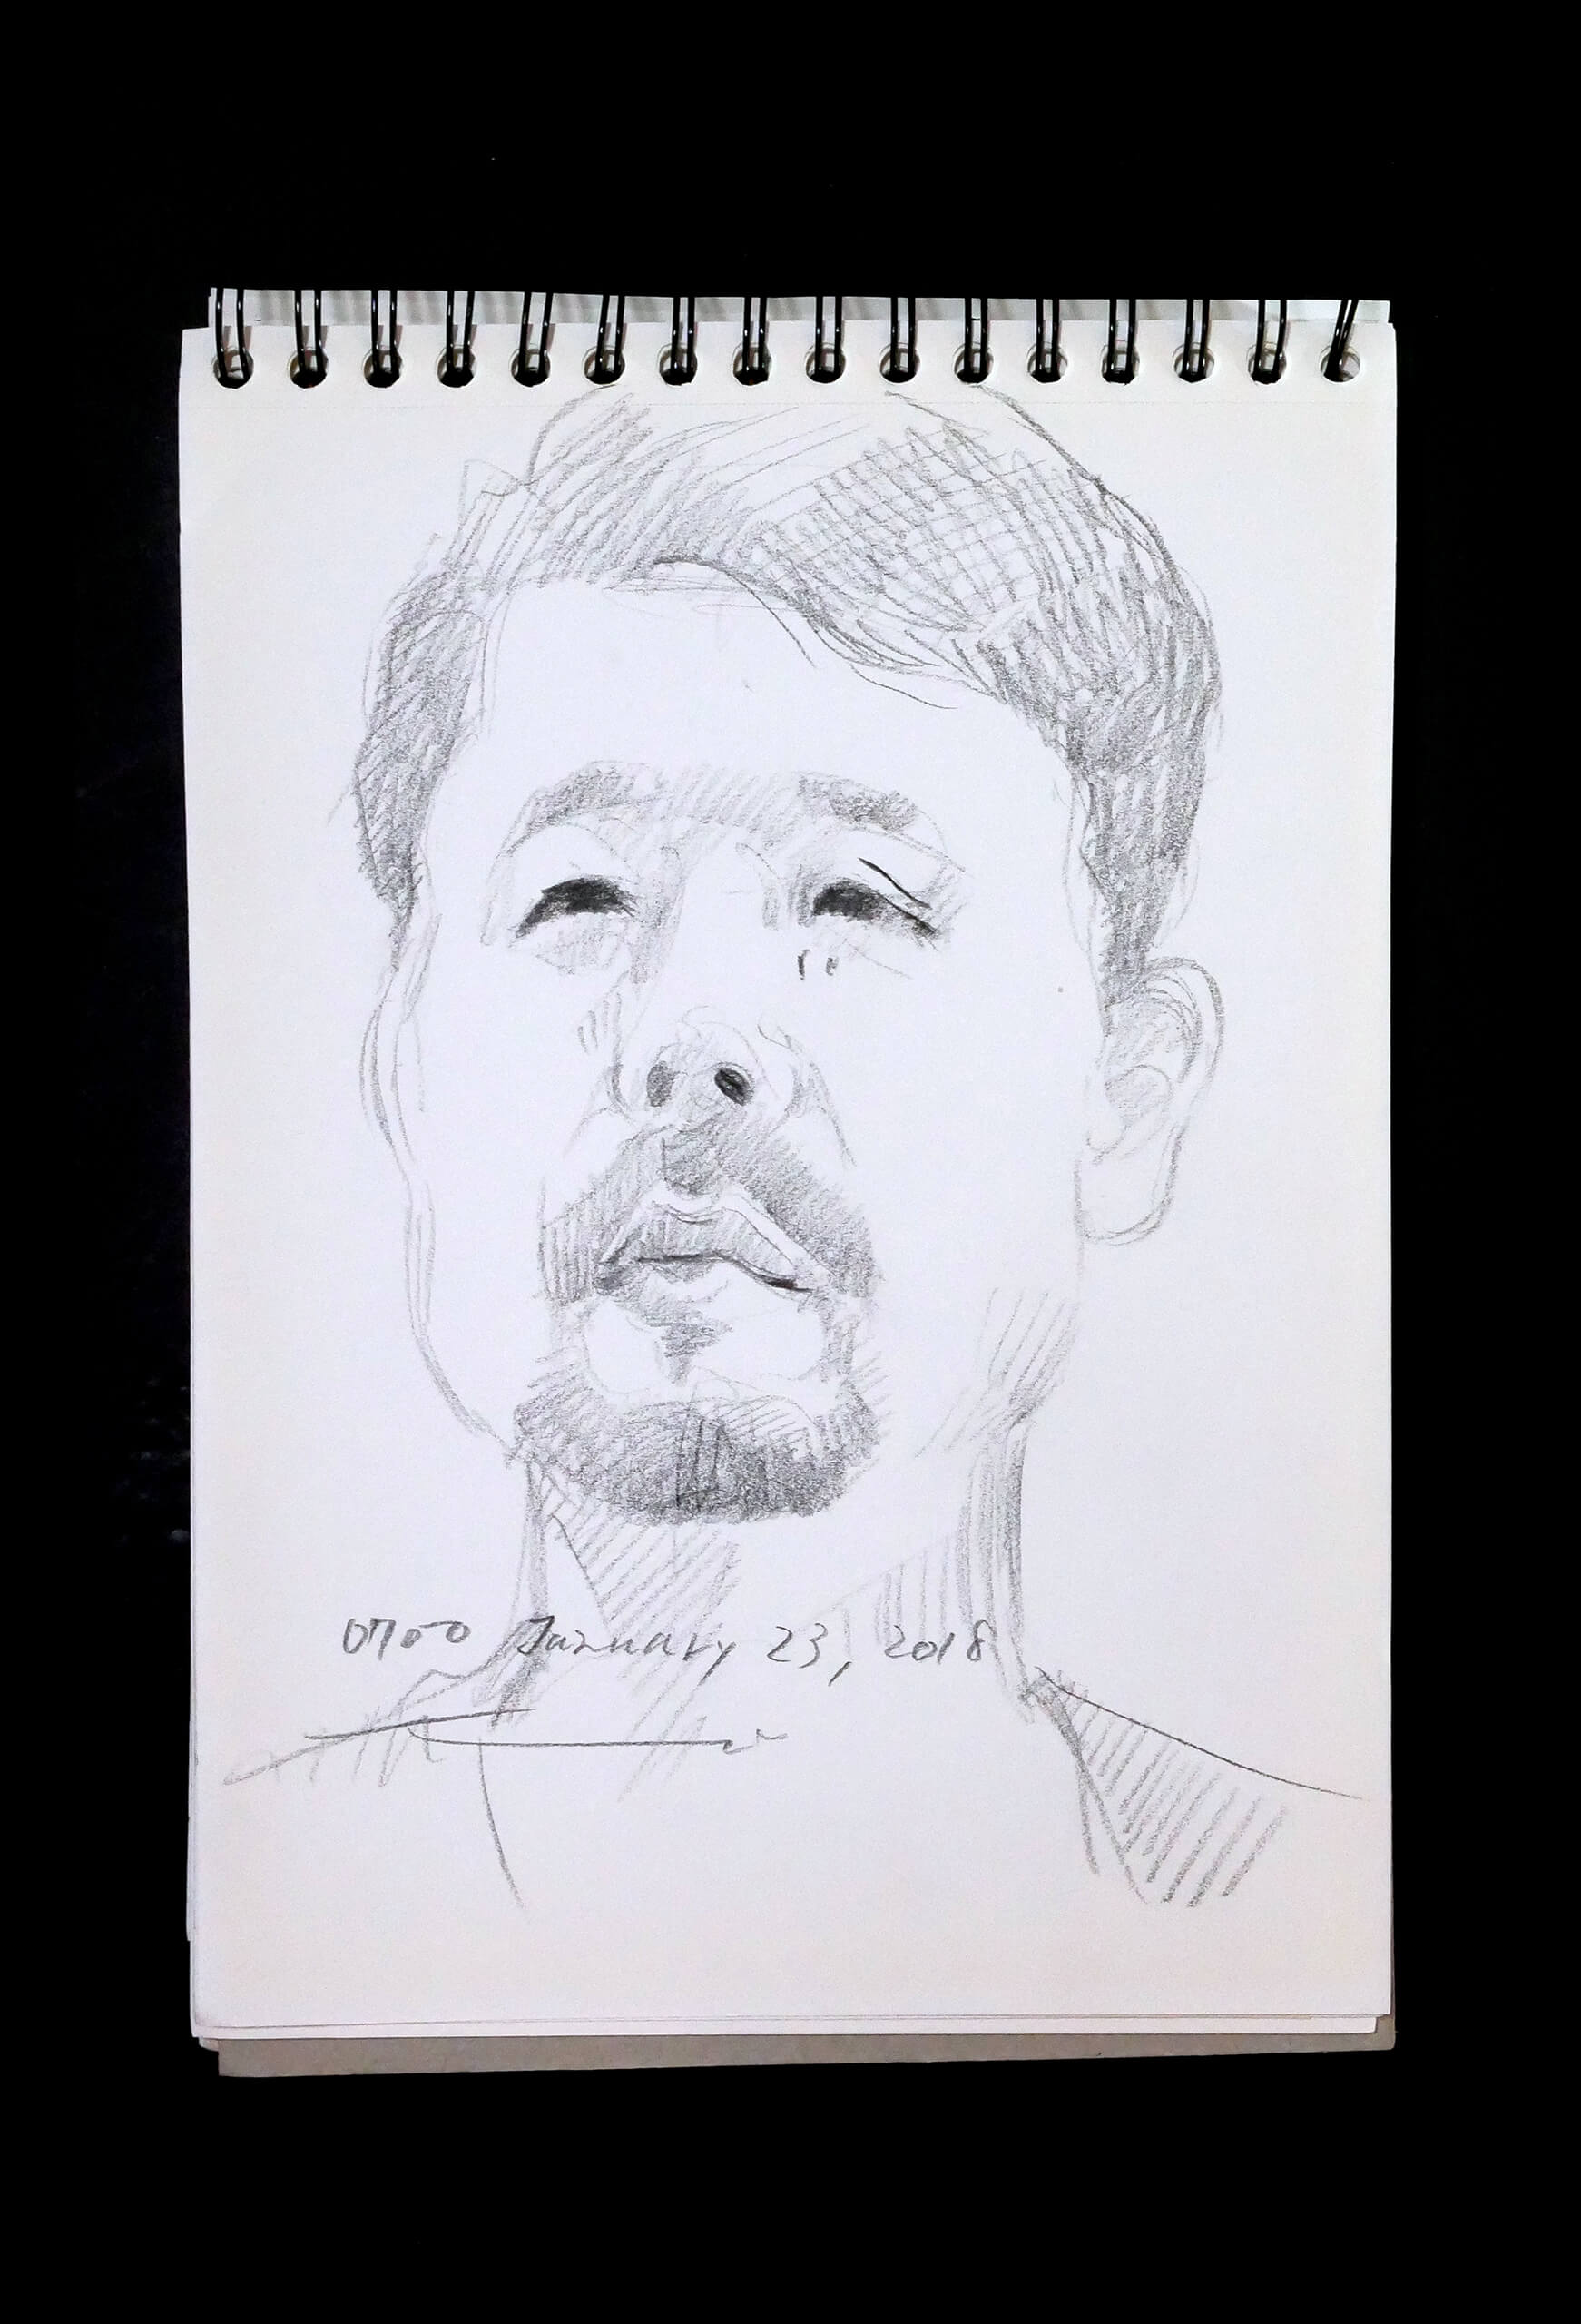 0700 January 23, 2018